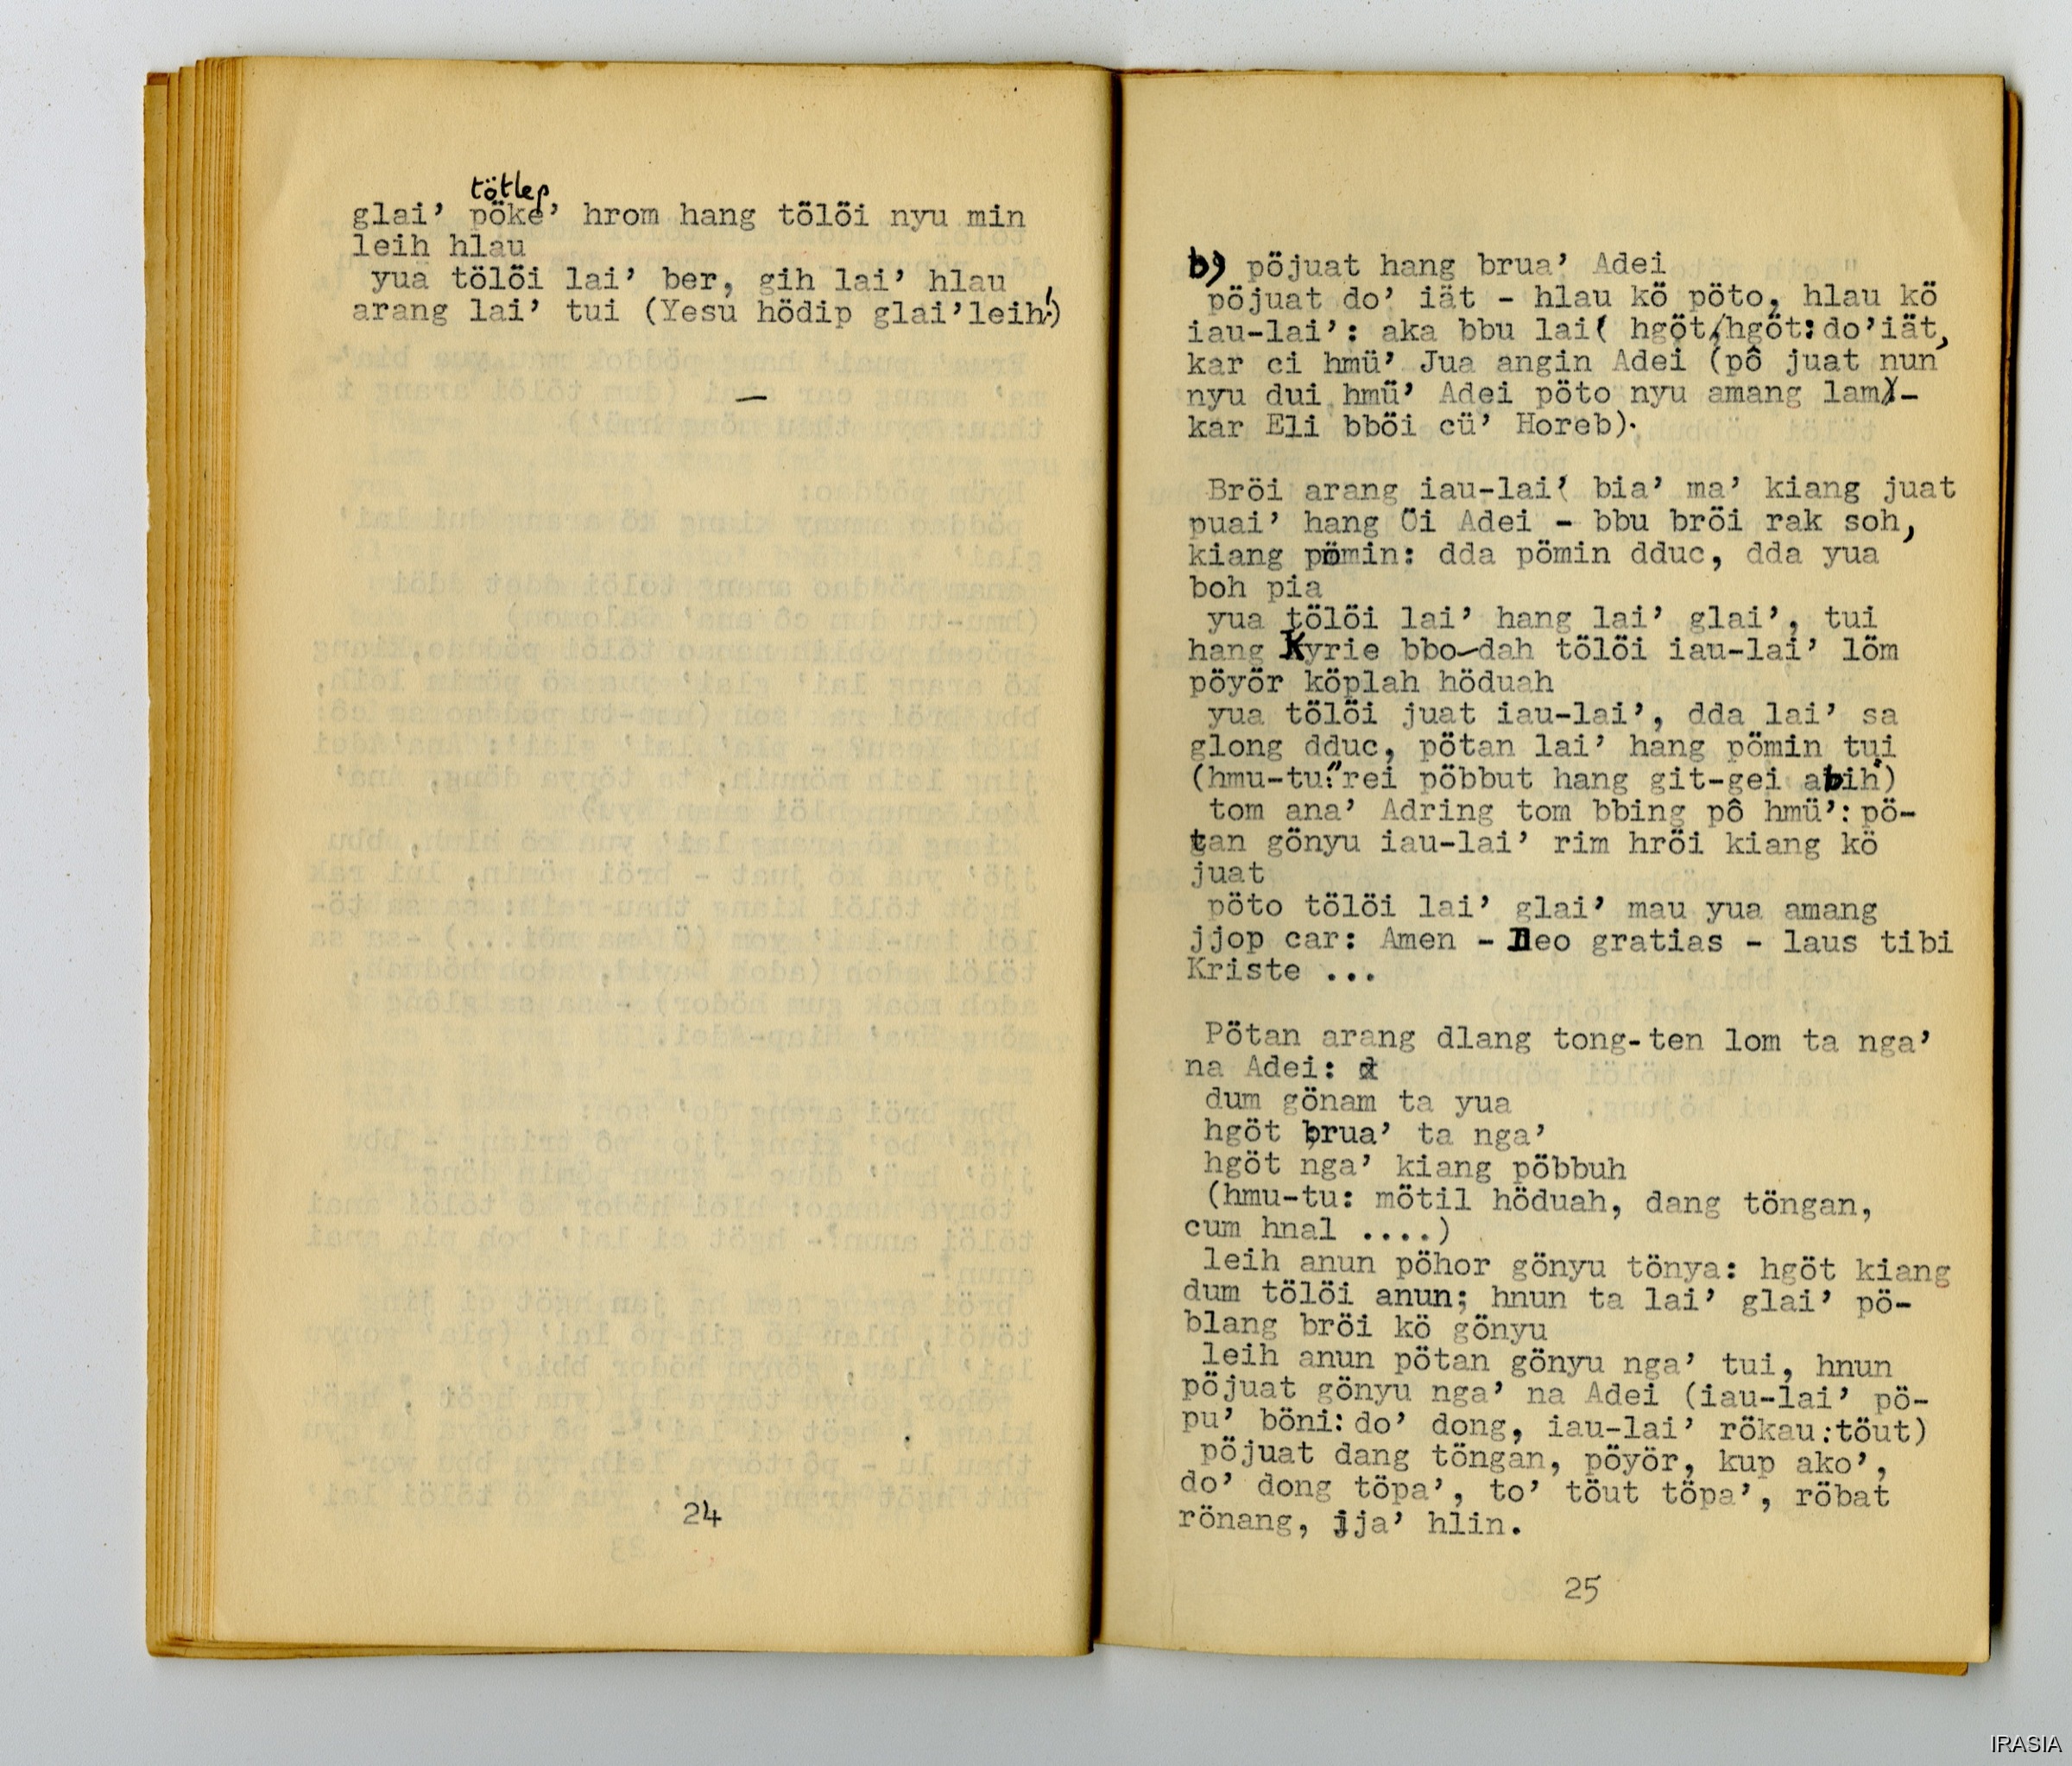 tötlep
glai’ pöke’ hrom hang tölöi nyu min
leih hlau
yua tölöi lai’ ber, gih lai’ hlau
arang lai’ tui (Yesu hödip glai’leih!)
24
b) pöjuat hang brua’ Adei
pöjuat do’ iät - hlau kö pöto, hlau kö
iau-lai’: aka bbu lai( hgöt/hgöt:do’iät,
kar ci hmü’ Jua angin Adei (pô juat nun
nyu dui hmü’ Adei pöto nyu amang lam)-
kar Eli bböi cü’ Horeb).
Bröi arang iau-lai’( bia’ ma’ kiang juat
puai’ hang Öi Adei - bbu bröi rak soh,
kiang pömin: dda pömin dduc, dda yua
boh pia
yua tölöi lai’ hang lai’ glai’, tui
hang Kyrie bbo-dah tölöi iau-lai’ löm
pöyör köplah höduah
yua tölöi juat iau-lai’, dda lai’ sa
glong dduc, pötan lai’ hang pömin tui
(hmu-tu:"rei pöbbut hang git-gei abih")
tom ana’ Adring tom bbing pô hmü’: pö-
tan gönyu iau-lai’ rim hröi kiang kö
juat
pöto tölöi lai’ glai’ mau yua amang
jjop car: Amen - Deo gratias - laus tibi
Kriste ...
Pötan arang dlang tong-ten lom ta nga’
na Adei:
dum gönam ta yua
hgöt brua’ ta nga’
hgöt nga’ kiang pöbbuh
(hmu-tu: mötil höduah, dang töngan,
cum hnal ....)
leih anun pöhor gönyu tönya: hgöt kiang
dum tölöi anun; hnun ta lai’ glai’ pö-
blang bröi kö gönyu
leih anun pötan gönyu nga’ tui, hnun
pöjuat gönyu nga’ na Adei (iau-lai’ pö-
pu’ böni: do’ dong, iau-lai’ rökau:töut)
pöjuat dang töngan, pöyör, kup ako’,
do’ dong töpa’, to’ töut töpa’, röbat
rönang, jja’ hlin.
25
IRASIA